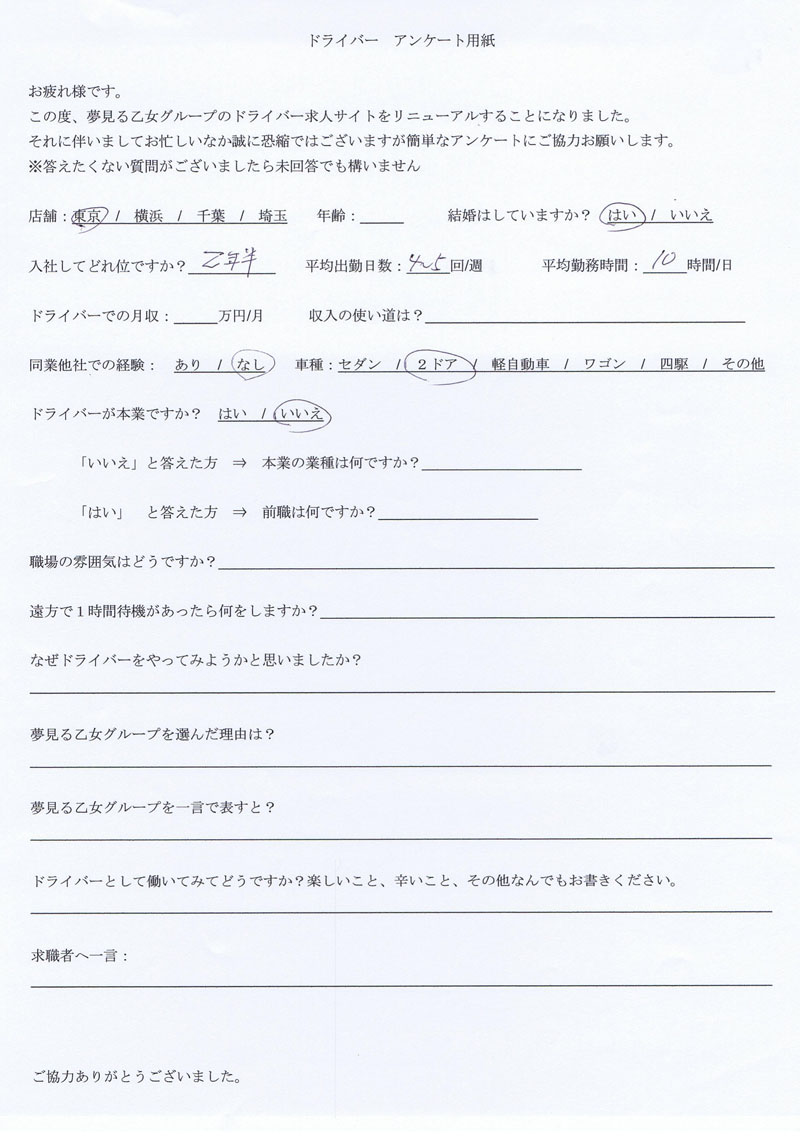 ドライバー　アンケート用紙
お疲れ様です。
この度、夢見る乙女グループのドライバー求人サイトをリニューアルすることになりました。
それに伴いましてお忙しいなか誠に恐縮ではございますが簡単なアンケートにご協力お願いします。
※答えたくない質問がございましたら未回答でも構いません
店舗：東京　/　横浜　/　千葉　/　埼玉　　年齢：＿＿＿　　結婚はしていますか？　はい　/　いいえ
入社してどれ位ですか？ 2年半　　平均出勤日数：4~5回/週　　平均勤務時間：10時間/日
ドライバーでの月収：＿＿＿万円/月　　収入の使い道は？
同業他社での経験：　あり　/　なし　　車種：セダン　/　２ドア　/　軽自動車　/　ワゴン　/　四駆　/　その他
ドライバーが本業ですか？　はい　/　いいえ
「いいえ」と答えた方　⇒　本業の業種は何ですか？
「はい」　と答えた方　⇒　前職は何ですか？
職場の雰囲気はどうですか？
遠方で１時間待機があったら何をしますか？
なぜドライバーをやってみようかと思いましたか？
夢見る乙女グループを選んだ理由は？
夢見る乙女グループを一言で表すと？
ドライバーとして働いてみてどうですか？楽しいこと、辛いこと、その他なんでもお書きください。
求職者へ一言：
ご協力ありがとうございました。